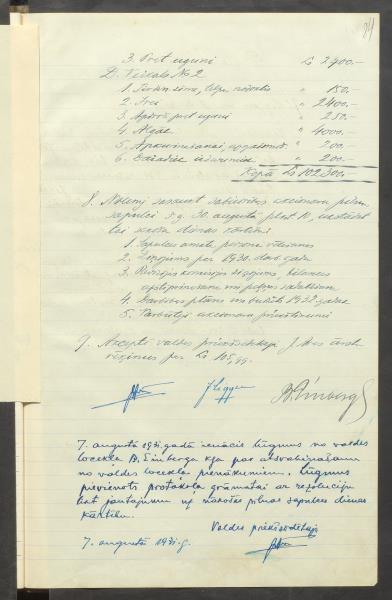 3. Pret uguni Ls 2400.-
D. Veikals No 2
1. Telpu nodoklis " 150.-
2. Īrei " 2400.-
3. Apdroš. pret uguni " 250.-
4. Algas " 4000.-
5. Apkurināšanai, apgaismoš. " 200.-
6. Dažādiem izdevumiem " 200.-
Kopā Ls 102.300.-
8. Nolemj sasaukt akcionāru pilnu
sapulci š.g. 30. augustā plkst. 10,
dienas kārtību:
1. Sapulces amata personu vēlēšanas
2. Ziņojums par 1930. darb. gadu
3. Revīzijas komisijas ziņojums, bilances
apstiprināšana un peļņas sadalīšana
4. Darbības plāns un budžets 193 gadam
5. Pārdevēju, akcionāru priekšlikumi
9. Akceptē valdes priekšsēdētāja J.
rēķinus par Ls 105,99.
7. augustā 1931. gadā ienācis lūgums no valdes
locekļa B. Einberga k-ga par atsvabināšanu
no valdes locekļa pienākumiem. Lūgums
pievienots protokolu grāmatai ar rezolūciju
likt jautājumu uz nākošās pilnas sapulces dienas
kārtību.
Valdes priekšsēdētājs
7. augustā 1931. g.